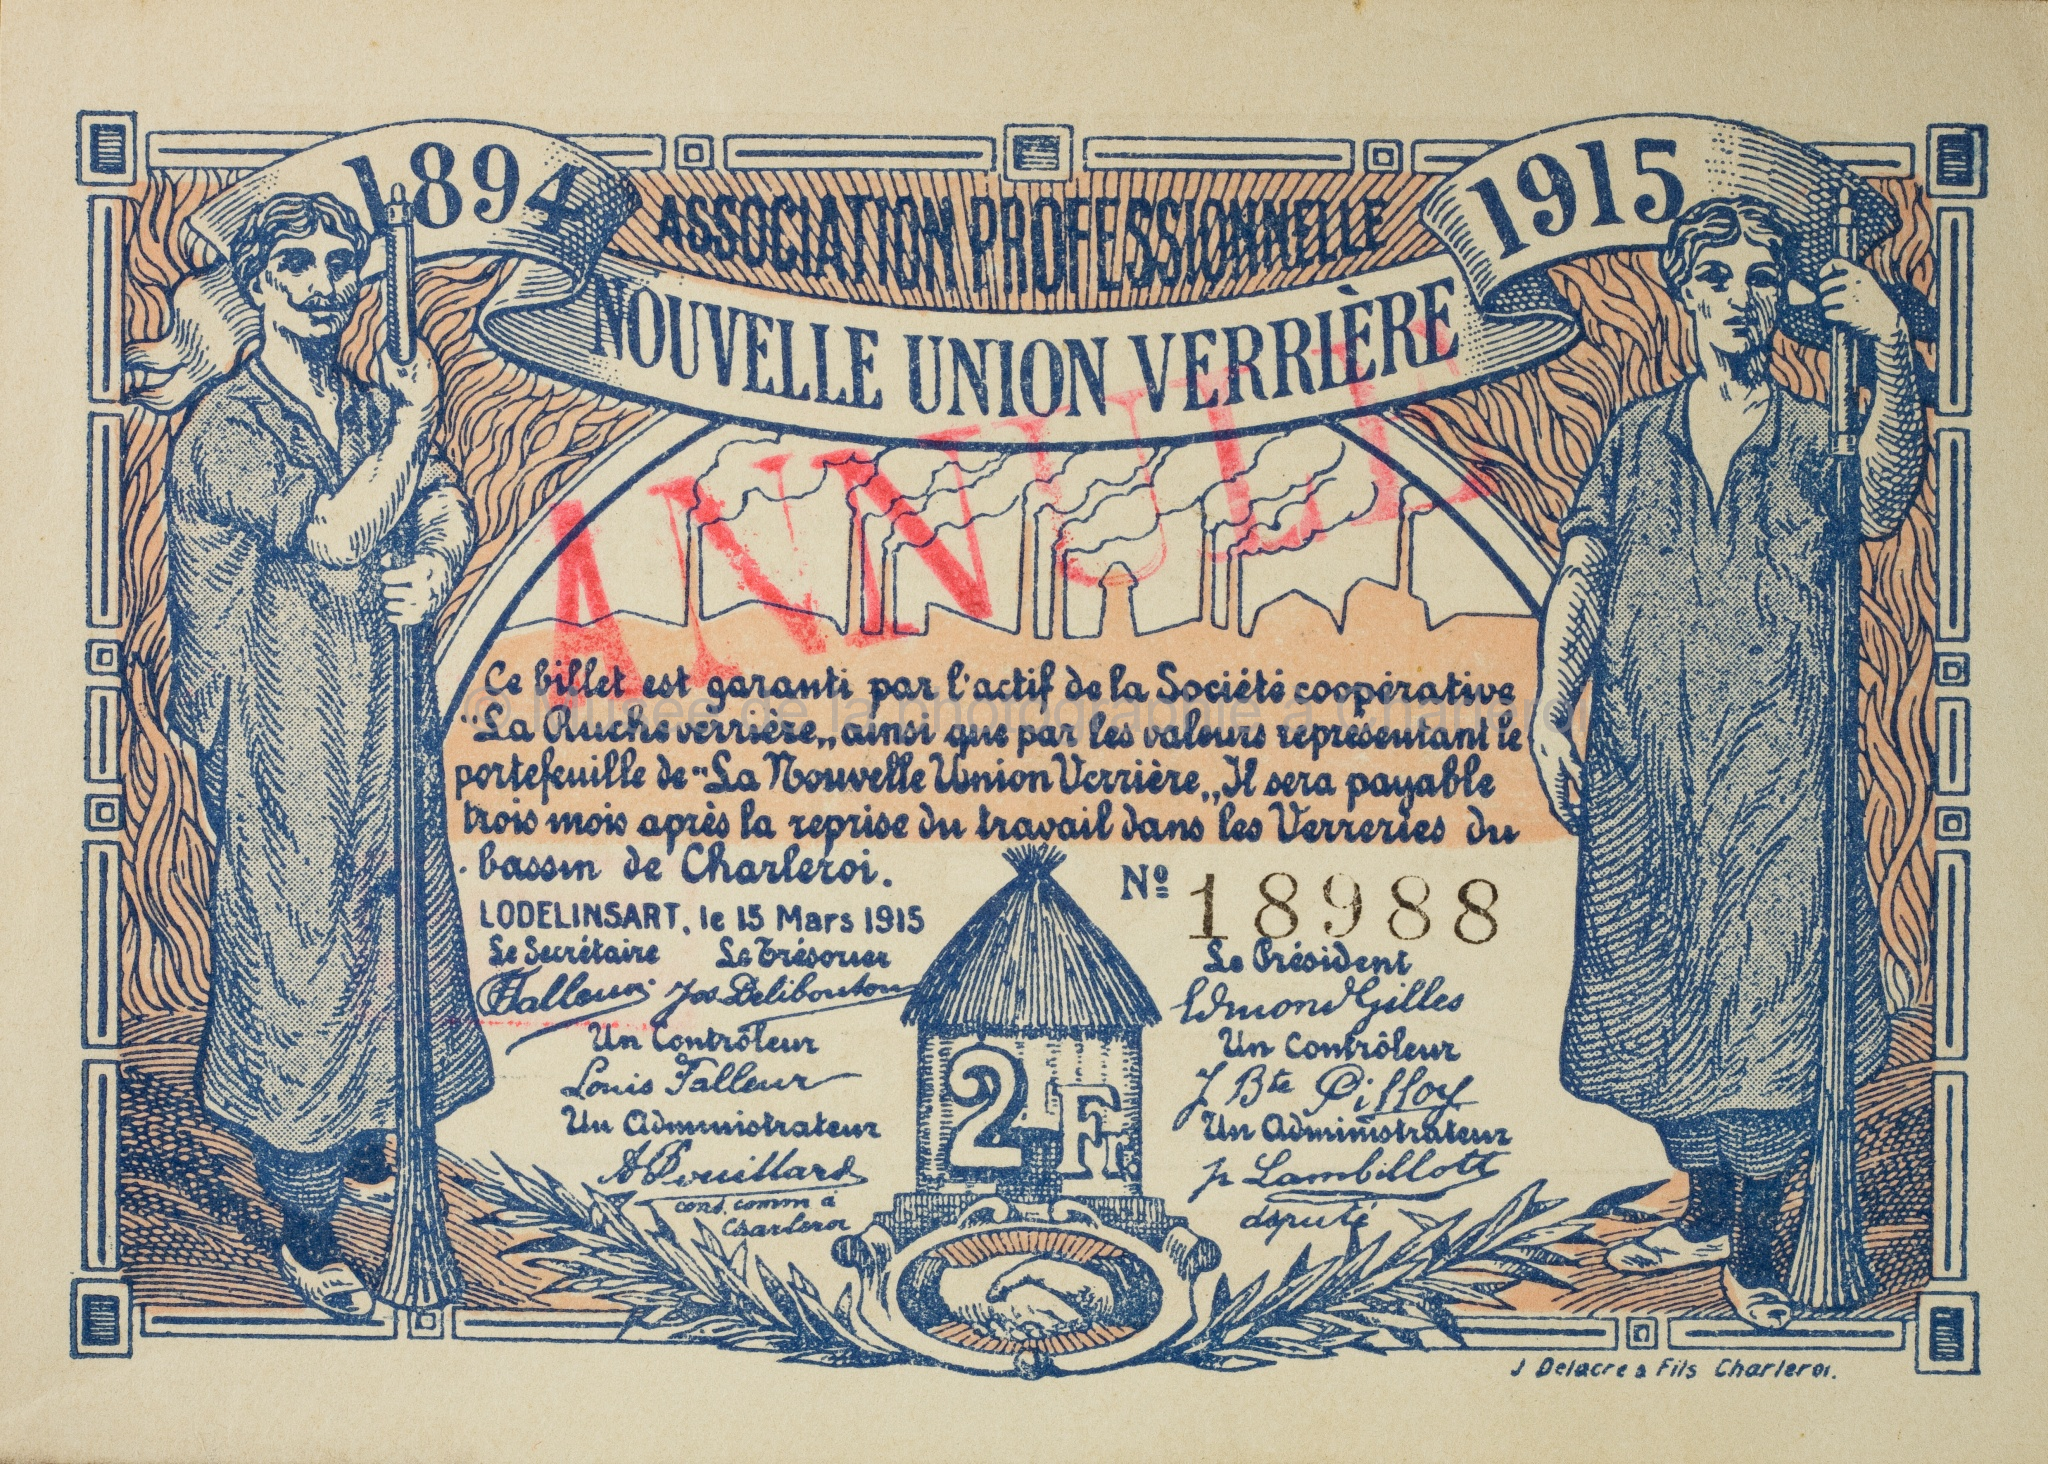 1894
1915
ASSOCIATION PROFESSIONNELLE
NOUVELLE UNION VERRIÈRE
ANNULÉ
Ce billet est garanti par l'actif de la Société coopérative
"La Ruche verrière„ ainsi que par les valeurs représentant le
portefeuille de "La Nouvelle Union Verrière„ Il sera payable
trois mois après la reprise du travail dans les Verreries du
bassin de Charleroi.
© Musée de la photographie à Charleroi
Nº 18988
LODELINSART, le 15 Mars 1915
Le Secrétaire Le Trésorier Le Président
Falleur Jos Delibouton Edmond Gilles
Un Contrôleur Un Contrôleur
Louis Falleur J Bte Pilloy
Un Administrateur Un Administrateur
A Bouillard Lambillotte
cons. comm à député
Charleroi
2 Fr.
J Delacre & Fils Charleroi.